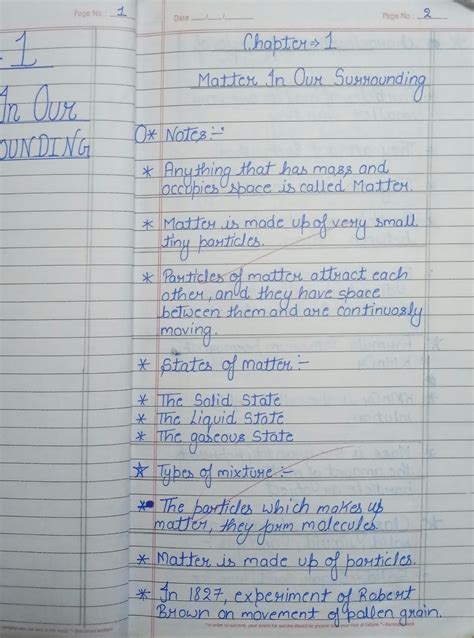 Page No.: 1
1
In Our
OUNDING
Date __/__/__
Page No.: 2
Chapter⇒1
Matter In Our Surrounding
O* Notes:-
* Anything that has mass and
occupies space is called Matter.
* Matter is made up of very small
tiny particles.
* Particles of matter attract each
other, and they have space
between them and are continuosly
moving.
* States of matter:-
* The Solid State
* The Liquid State
* The gaseous State
* Types of mixture:-
* The particles which makes up
matter, they form molecules.
* Matter is made up of particles.
* In 1827, experiment of Robert
Brown on movement of pollen grain.